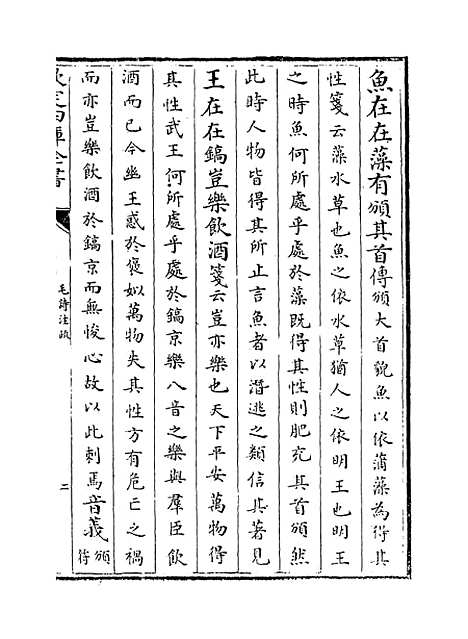 魚在在藻有頒其首傳頒大首貌魚以依蒲藻為得其
性箋云藻水草也魚之依水草猶人之依明王也明王
之時魚何所處乎處於藻既得其性則肥充其首頒然
此時人物皆得其所止言魚者以潛逃之類信其著見
王在在鎬豈樂飲酒箋云豈亦樂也天下平安萬物得
其性武王何所處乎處於鎬京樂八音之樂與羣臣飲
酒而已今幽王惑於褒姒萬物失其性方有危亡之禍
而亦豈樂飲酒於鎬京而無悛心故以此刺焉音義頒符
欽定四庫全書
毛詩注疏
二